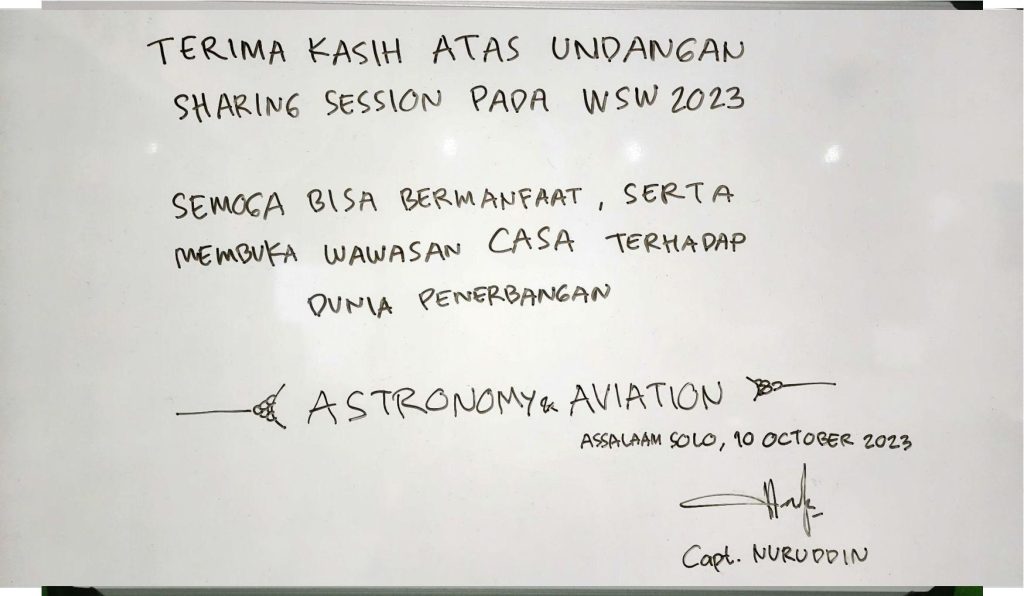 TERIMA KASIH ATAS UNDANGAN
SHARING SESSION PADA WSW 2023
SEMOGA BISA BERMANFAAT, SERTA
MEMBUKA WAWASAN CASA TERHADAP
DUNIA PENERBANGAN
ASTRONOMY & AVIATION
ASSALAAM SOLO, 10 OCTOBER 2023
Capt. NURUDDIN